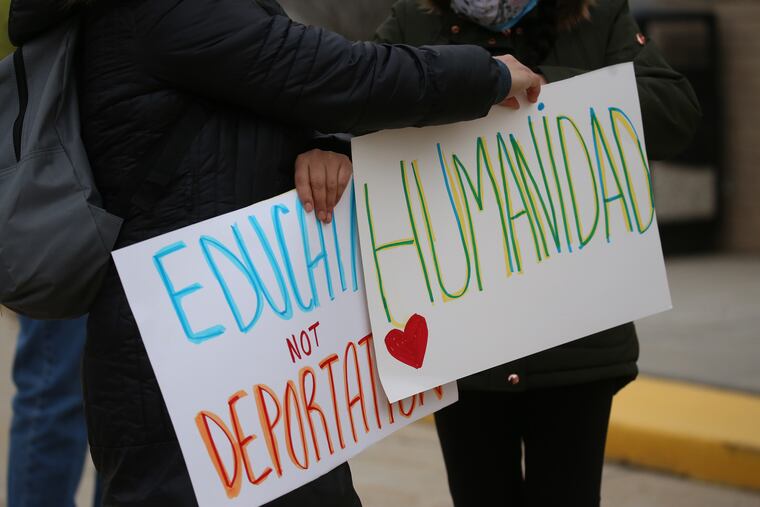 EDUCATI
NOT
DEPORTATION
HUMANIDAD